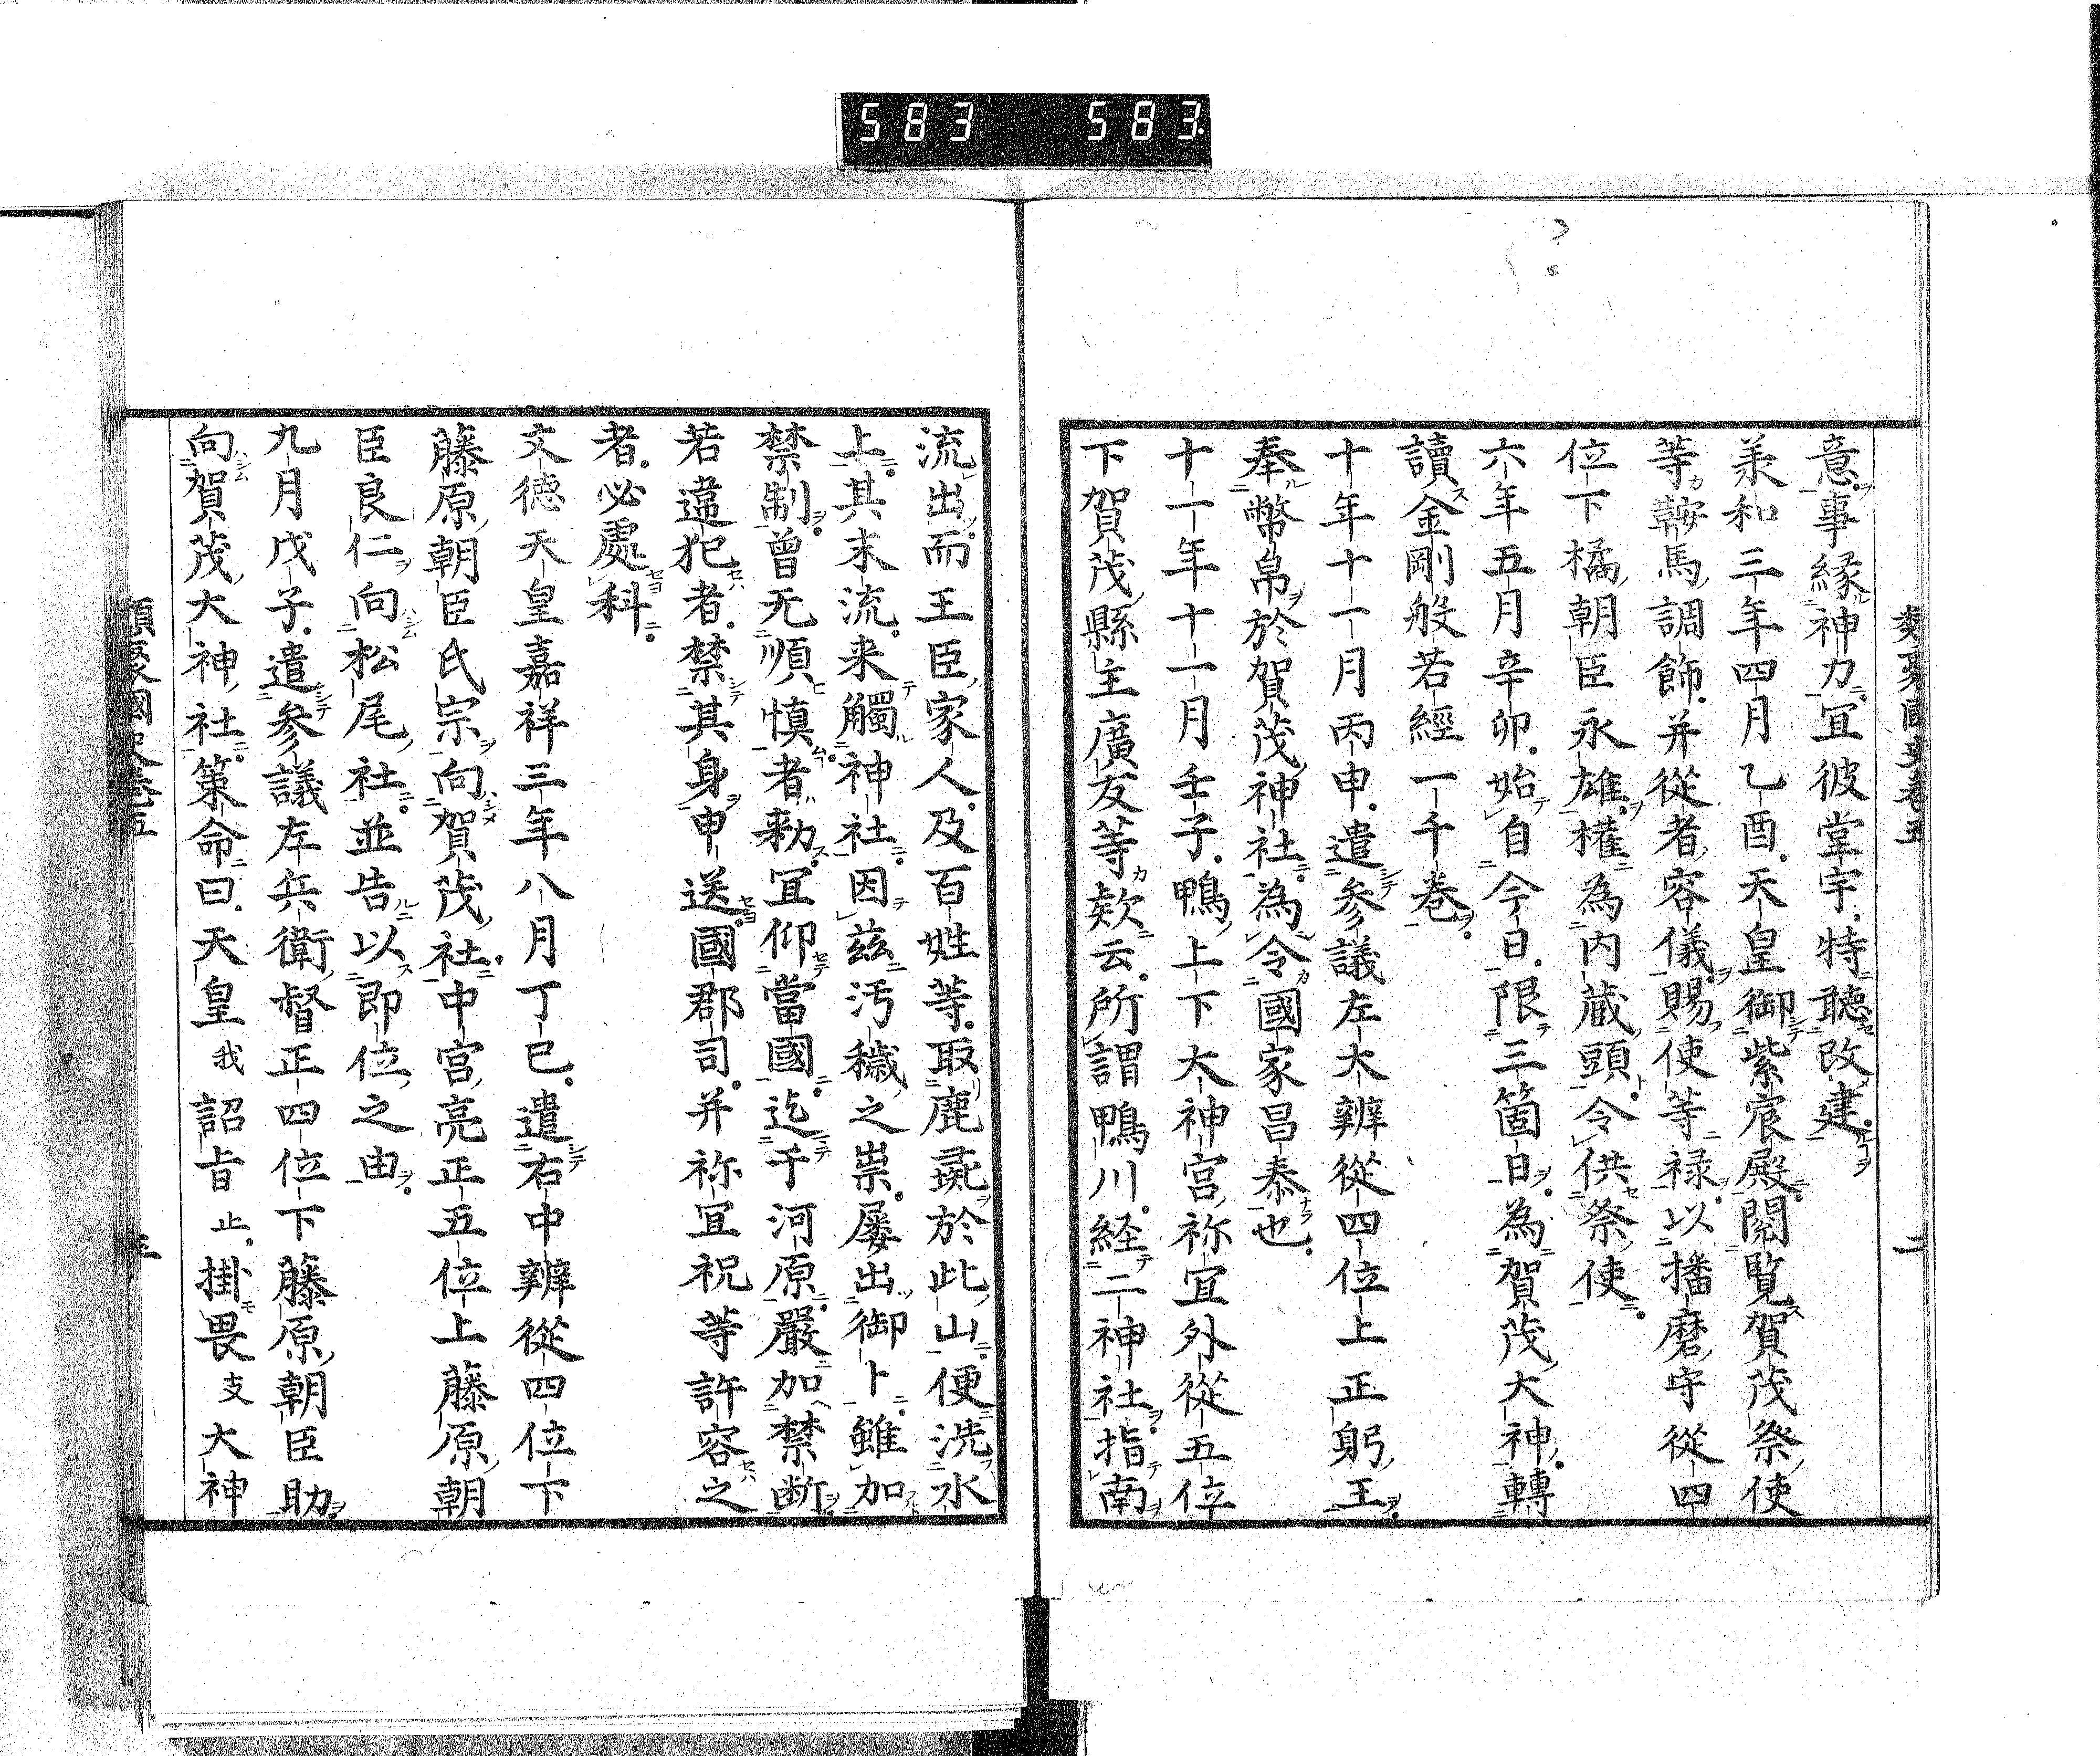 583 583.
類聚國史卷五 二
意事縁神力冝彼堂宇特聴改建
兼和三年四月乙酉天皇御紫宸殿閲覧賀茂祭使
等鞍馬調飾并從者容儀賜使等禄以播磨守從四
位下橘朝臣永雄權為内蔵頭令供祭使
六年五月辛卯始自今日限三箇日為賀茂大神轉
讀金剛般若經一千巻
十年十一月丙申遣参議左大辨從四位上正躬王
奉幣帛於賀茂神社為令國家昌泰也
十一年十一月壬子鴨上下大神宮祢宜外從五位
下賀茂縣主廣友等欵云所謂鴨川経二神社指南
流出而王臣家人及百姓等取鹿彘於此山便洗水
上其末流来觸神社因兹汚穢之祟屡出御卜雖加
禁制曽无順慎者勅冝仰當國迄于河原嚴加禁断
若違犯者禁其身申送國郡司并祢冝祝等許容之
者必處科
文徳天皇嘉祥三年八月丁巳遣右中辨從四位下
藤原朝臣氏宗向賀茂社中宮亮正五位上藤原朝
臣良仁向松尾社並告以即位之由
九月戊子遣参議左兵衛督正四位下藤原朝臣助
向賀茂大神社策命曰天皇我詔旨止掛畏支大神
類聚國史巻五 三